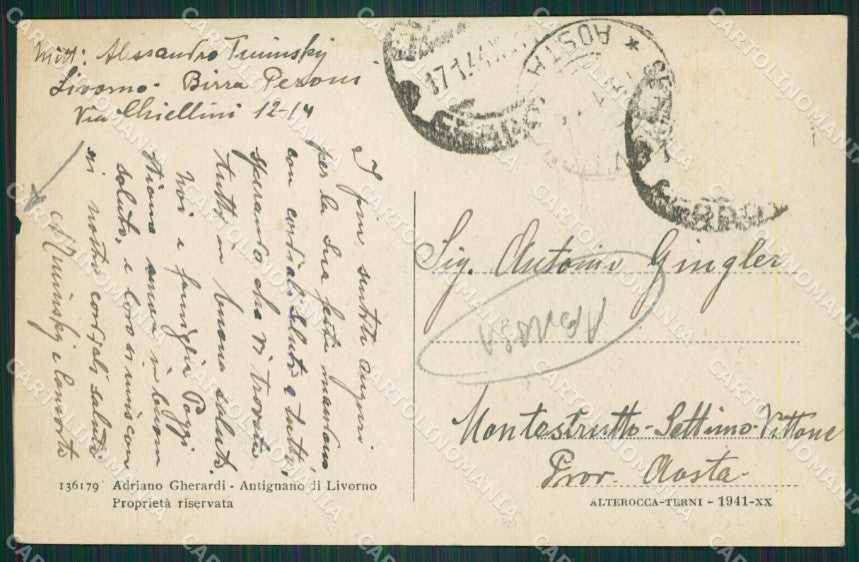 Mitt: Alessandro
Livorno - Birra Peroni
Via Chiellini 12-14
I più sentiti auguri
per la Sua festa mandiamo
con cordiali saluti a tutti
sperando che vi troviate
tutti in buona salute.
Noi e famiglia Poggi
stiamo anche in buona
salute, e loro si uniscono
ai nostri cordiali saluti
Sig. Antonio Gingler
Montestrutto - Settimo Vittone
Prov. Aosta.
AOSTA
136179 Adriano Gherardi - Antignano di Livorno
Proprietà riservata
ALTEROCCA-TERNI - 1941-XX
CARTOLINOMANIA